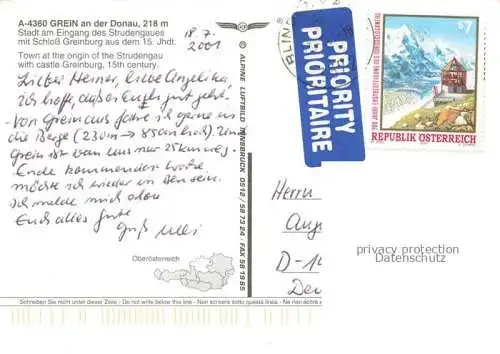 A-4360 GREIN an der Donau, 218 m
Stadt am Eingang des Strudengaues
mit Schloß Greinburg aus dem 15. Jhdt.
Town at the origin of the Strudengau
with castle Greinburg, 15th century.
18.7.
2001
Lieber Heiner, liebe Angelika,
Ich hoffe, daß es Euch gut geht!
Von Grein aus fahre ich gerne in
die Berge (230m → 850m hoch).
Grein ist von uns nur 25 km weg.
Ende kommender Woche
möchte ich wieder in
Ich melde mich dann
Euch alles Gute
Gruß
Oberösterreich
© ALPINE LUFTBILD INNSBRUCK 0512 / 58 73 24 - FAX 58 19 85
PRIORITY
PRIORITAIRE
7
REPUBLIK ÖSTERREICH
Herrn
D-1
privacy protection
Datenschutz
Schreiben Sie nicht unter dieser Zeile - Do not write below this line - Non scrivere sotto questa linea - Ne rien écrire